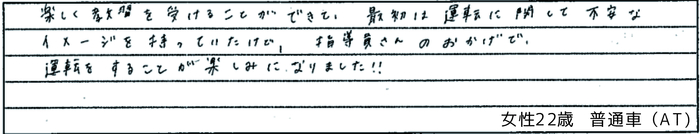 楽しく教習を受けることができて、最初は運転に関して不安な
イメージを持っていたけど、指導員さんのおかげで、
運転をすることが楽しみになりました!!
女性22歳 普通車（AT）